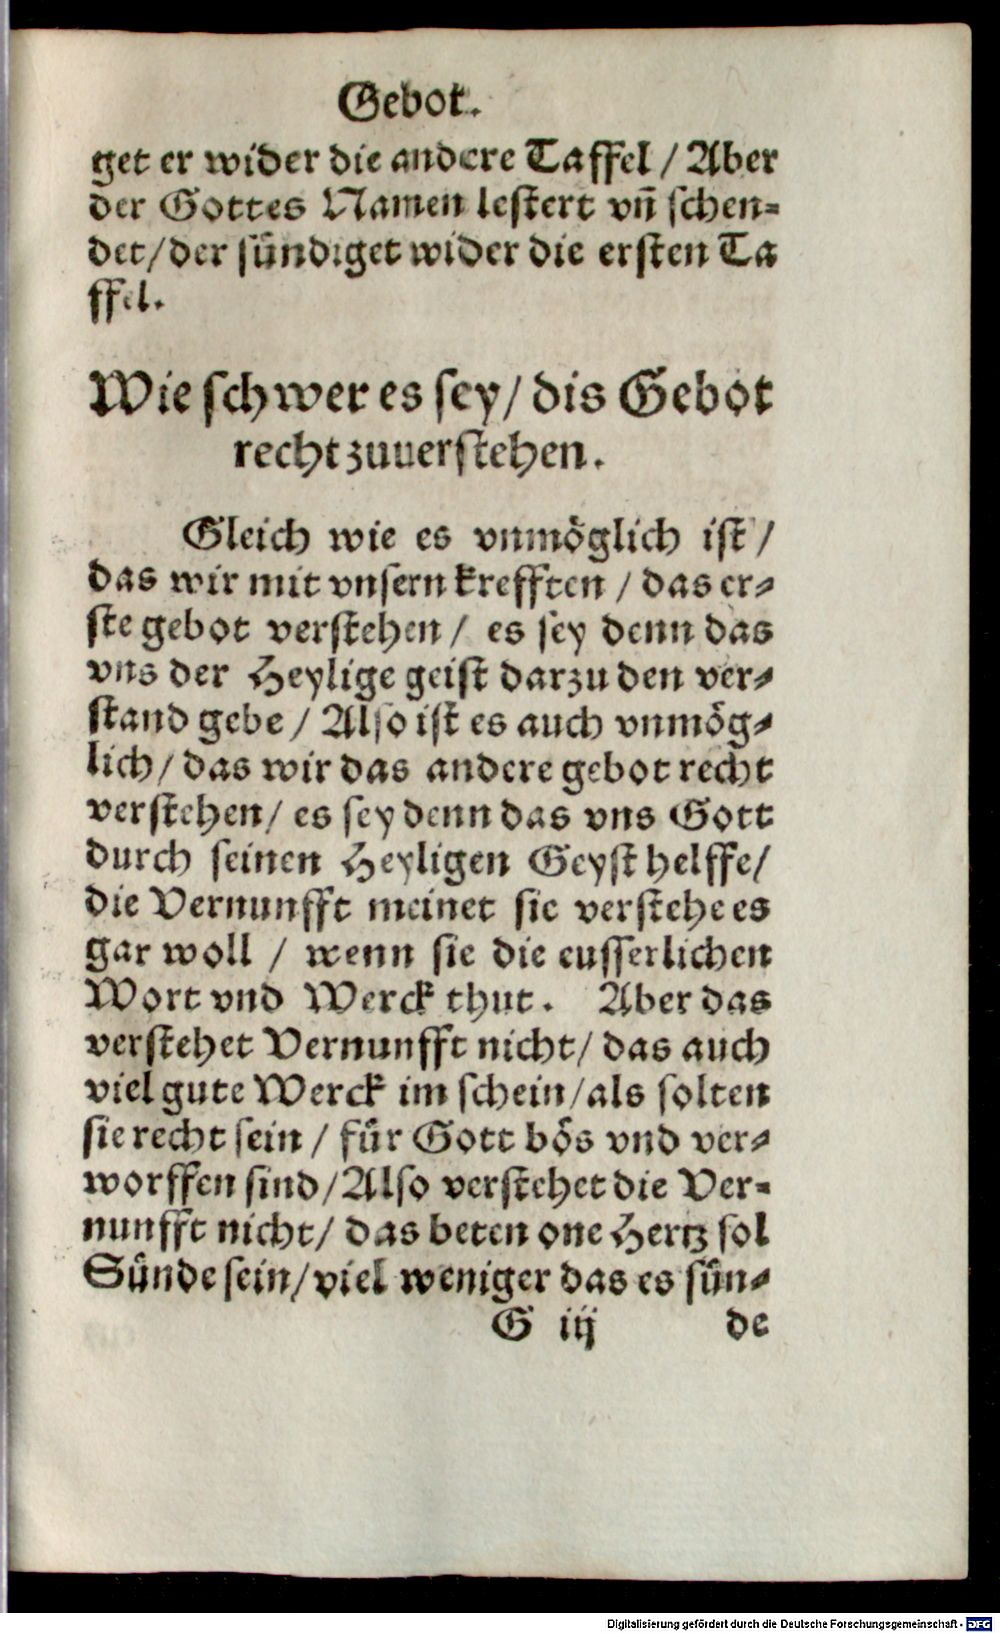 Gebot.
get er wider die andere Taffel / Aber
der Gottes Namen lestert vn̄ schen-
det / der sündiget wider die ersten Ta
ffel.
Wie schwer es sey / dis Gebot
recht zuuerstehen.
Gleich wie es vnmöglich ist /
das wir mit vnsern krefften / das er-
ste gebot verstehen / es sey denn das
vns der Heylige geist darzu den ver-
stand gebe / Also ist es auch vnmög-
lich / das wir das andere gebot recht
verstehen / es sey denn das vns Gott
durch seinen Heyligen Geyst helffe /
die Vernunfft meinet sie verstehe es
gar woll / wenn sie die eusserlichen
Wort vnd Werck thut. Aber das
verstehet Vernunfft nicht / das auch
viel gute Werck im schein / als solten
sie recht sein / für Gott bös vnd ver-
worffen sind / Also verstehet die Ver-
nunfft nicht / das beten one Hertz sol
Sünde sein / viel weniger das es sün-
G iij de
Digitalisierung gefördert durch die Deutsche Forschungsgemeinschaft - DFG